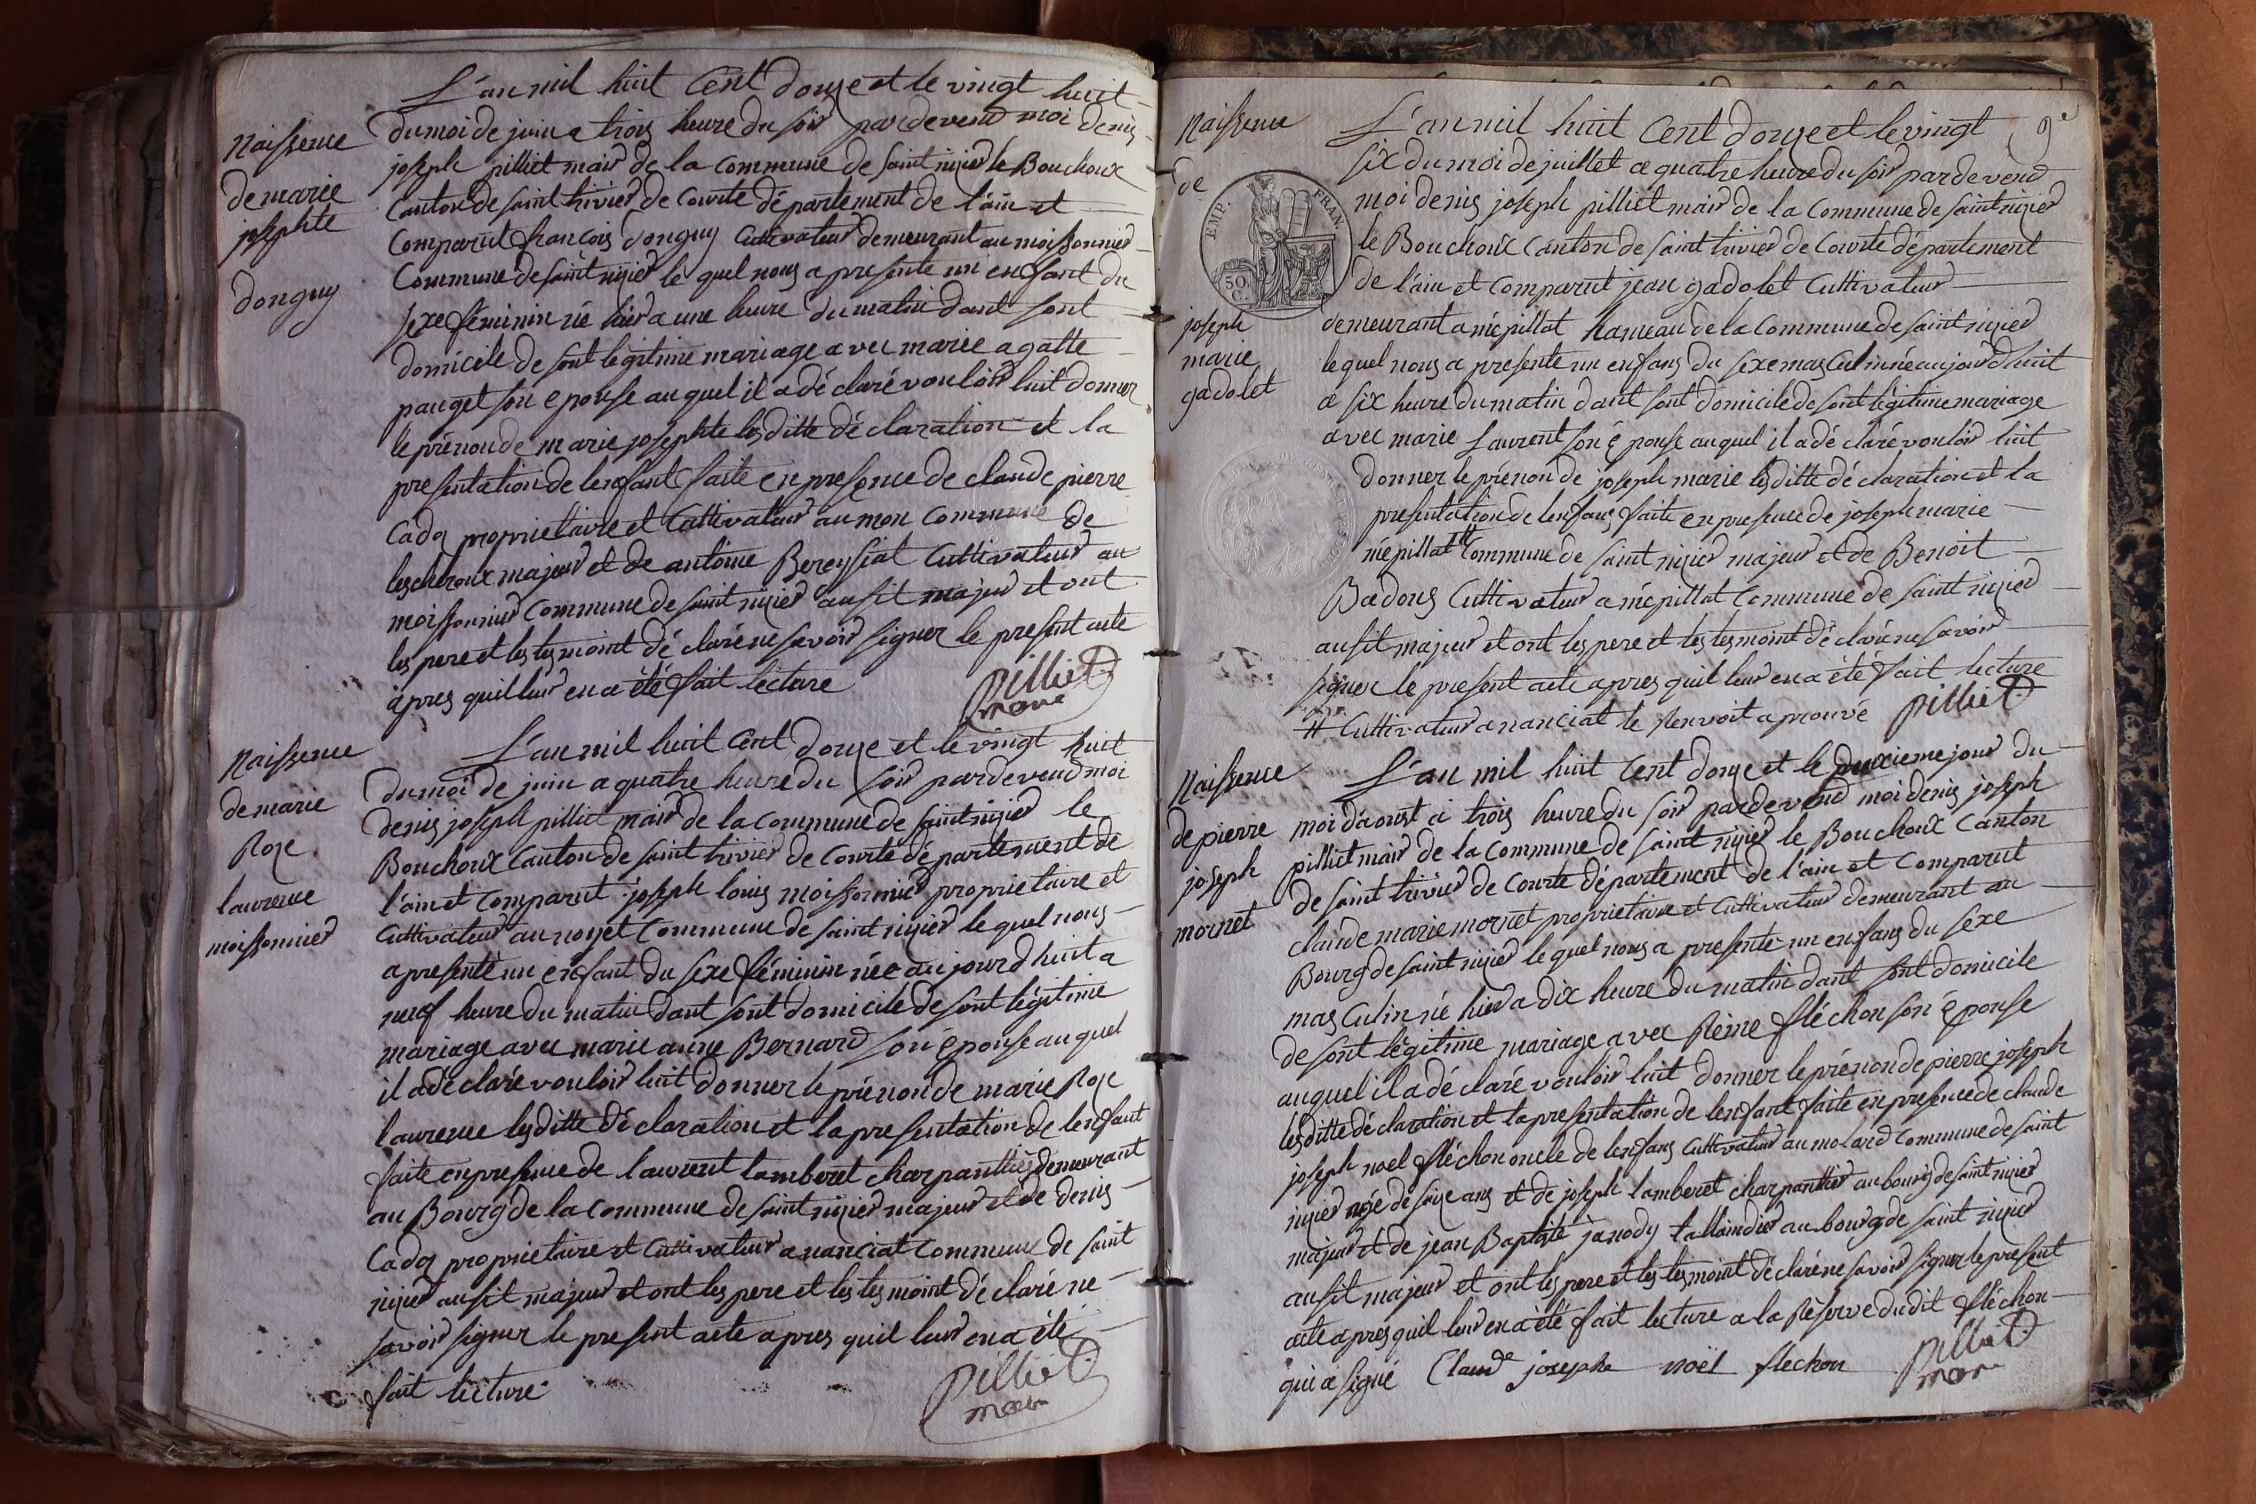 L'an mil huit Cent douze et le vingt huit
du moi de juin a trois heure du soir pardevend moi denis
joseph pilliet mair de la commune de saint nizier le Bouchoux
Canton de saint trivier de Courte département de l'ain et
Comparut francois donguy Cultivateur demeurant au moissonnier
Commune de saint nizier le quel nous a presente un enfant du
sexe féminin né hier a une heure du matin dant sont
domicile de sont legitime mariage avec marie agatte
pauget son epouse auquel il a dé claré vouloir luit donner
le prénon de marie josephte lesditte dé claration et la
presentation de lenfant faite en presence de claude pierre
Cadoz proprietaire et Cultivateur au mon Commune de
lescheroux majeur et de antoine Bereyziat Cultivateur au
moissonnier Commune de saint nizier ausit majeur et ont
les pere et les tesmoint dé claré ne savoir signer le present acte
apres quil leur en a été fait lecture
pilliet
maire
Naissence
de marie
josephte
donguy
L'an mil huit Cent douze et le vingt huit
du moi de juin a quatre heure du soir pardevend moi
denis joseph pilliet mair de la commune de saint nizier le
Bouchoux Canton de saint trivier de Courte département de
l'ain et Comparut joseph louis moissonnier proprietaire et
Cultivateur au noyet Commune de saint nizier le quel nous
a presenté un enfant du sexe féminin née aujourd huit a
neuf heure du matin dant sont domicile de sont légitime
mariage avec marie anne Bernard son épouse au quel
il a dé claré vouloir luit donner le prénon de marie Roze
laurence lesditte dé claration et la presentation de lenfant
faite en presence de laurent lamberet charpanttier demeurant
au Bourg de la commune de saint nizier majeur et de denis
Cadoz proprietaire et Cultivateur a nanciat Commune de saint
nizier ausit majeur et ont les pere et les tesmoint dé claré ne
savoir signer le present acte apres quil leur en a été
fait lecture
pilliet
maire
Naissence
de marie
Roze
laurence
moissonnier
9e
L'an mil huit Cent douze et le vingt
six du moi de juillet a quatre heure du soir pardevend
moi denis joseph pilliet mair de la Commune de saint nizier
le Bouchoux Canton de saint trivier de Courte département
de l'ain et Comparut jean gadolet Cultivateur
demeurant a mépillat hameau de la Commune de saint nizier
le quel nous a presente un enfans du sexe mas Culin né aujourd huit
a six heure du matin dant sont domicile de sont légitime mariage
avec marie Laurent son é pouse auquel il a dé claré vouloir luit
donner le prénon de joseph marie lesditte dé claration et la
presentation de lenfans faite en presence de joseph marie
mépillat # Commune de saint nizier majeur et de Benoit
Badoux Cultivateur a mépillat Commune de saint nizier
ausit majeur et ont les pere et les tesmoint dé claré ne savoir
signer le present acte apres quil leur en a été fait lecture
# Cultivateur a nanciat le Renvoit aprouve pilliet
Naissence
de
EMP. FRAN.
50 C.
joseph
marie
gadolet
L'an mil huit Cent douze et le deuxieme jour du
moi d'aoust a trois heure du soir pardevend moi denis joseph
pilliet mair de la Commune de saint nizier le Bouchoux Canton
de saint trivier de Courte département de l'ain et Comparut
claude marie mornet proprietaire et Cultivateur demeurant au
Bourg de saint nizier le quel nous a presente un enfans du sexe
mas Culin né hier a dix heure du matin dant sont domicile
de sont légitime mariage avec Reine fléchon son é pouse
auquel il a dé claré vouloir luit donner le prénon de pierre joseph
lesditte dé claration et la presentation de lenfant faite en presence de claude
joseph noel fléchon oncle de lenfans Cultivateur au molard Commune de saint
nizier agé de saize ans et de joseph lamberet charpanttier au bourg de saint nizier
majeur et de jean Baptiste janody tallaindier au bourg de saint nizier
ausit majeur et ont les pere et les tesmoint dé claré ne savoir signer le present
acte apres quil leur en a été fait lecture a la Réserve dudit fléchon
qui a signé Claude josephe noël flechon pilliet
maire
Naissence
de pierre
joseph
mornet